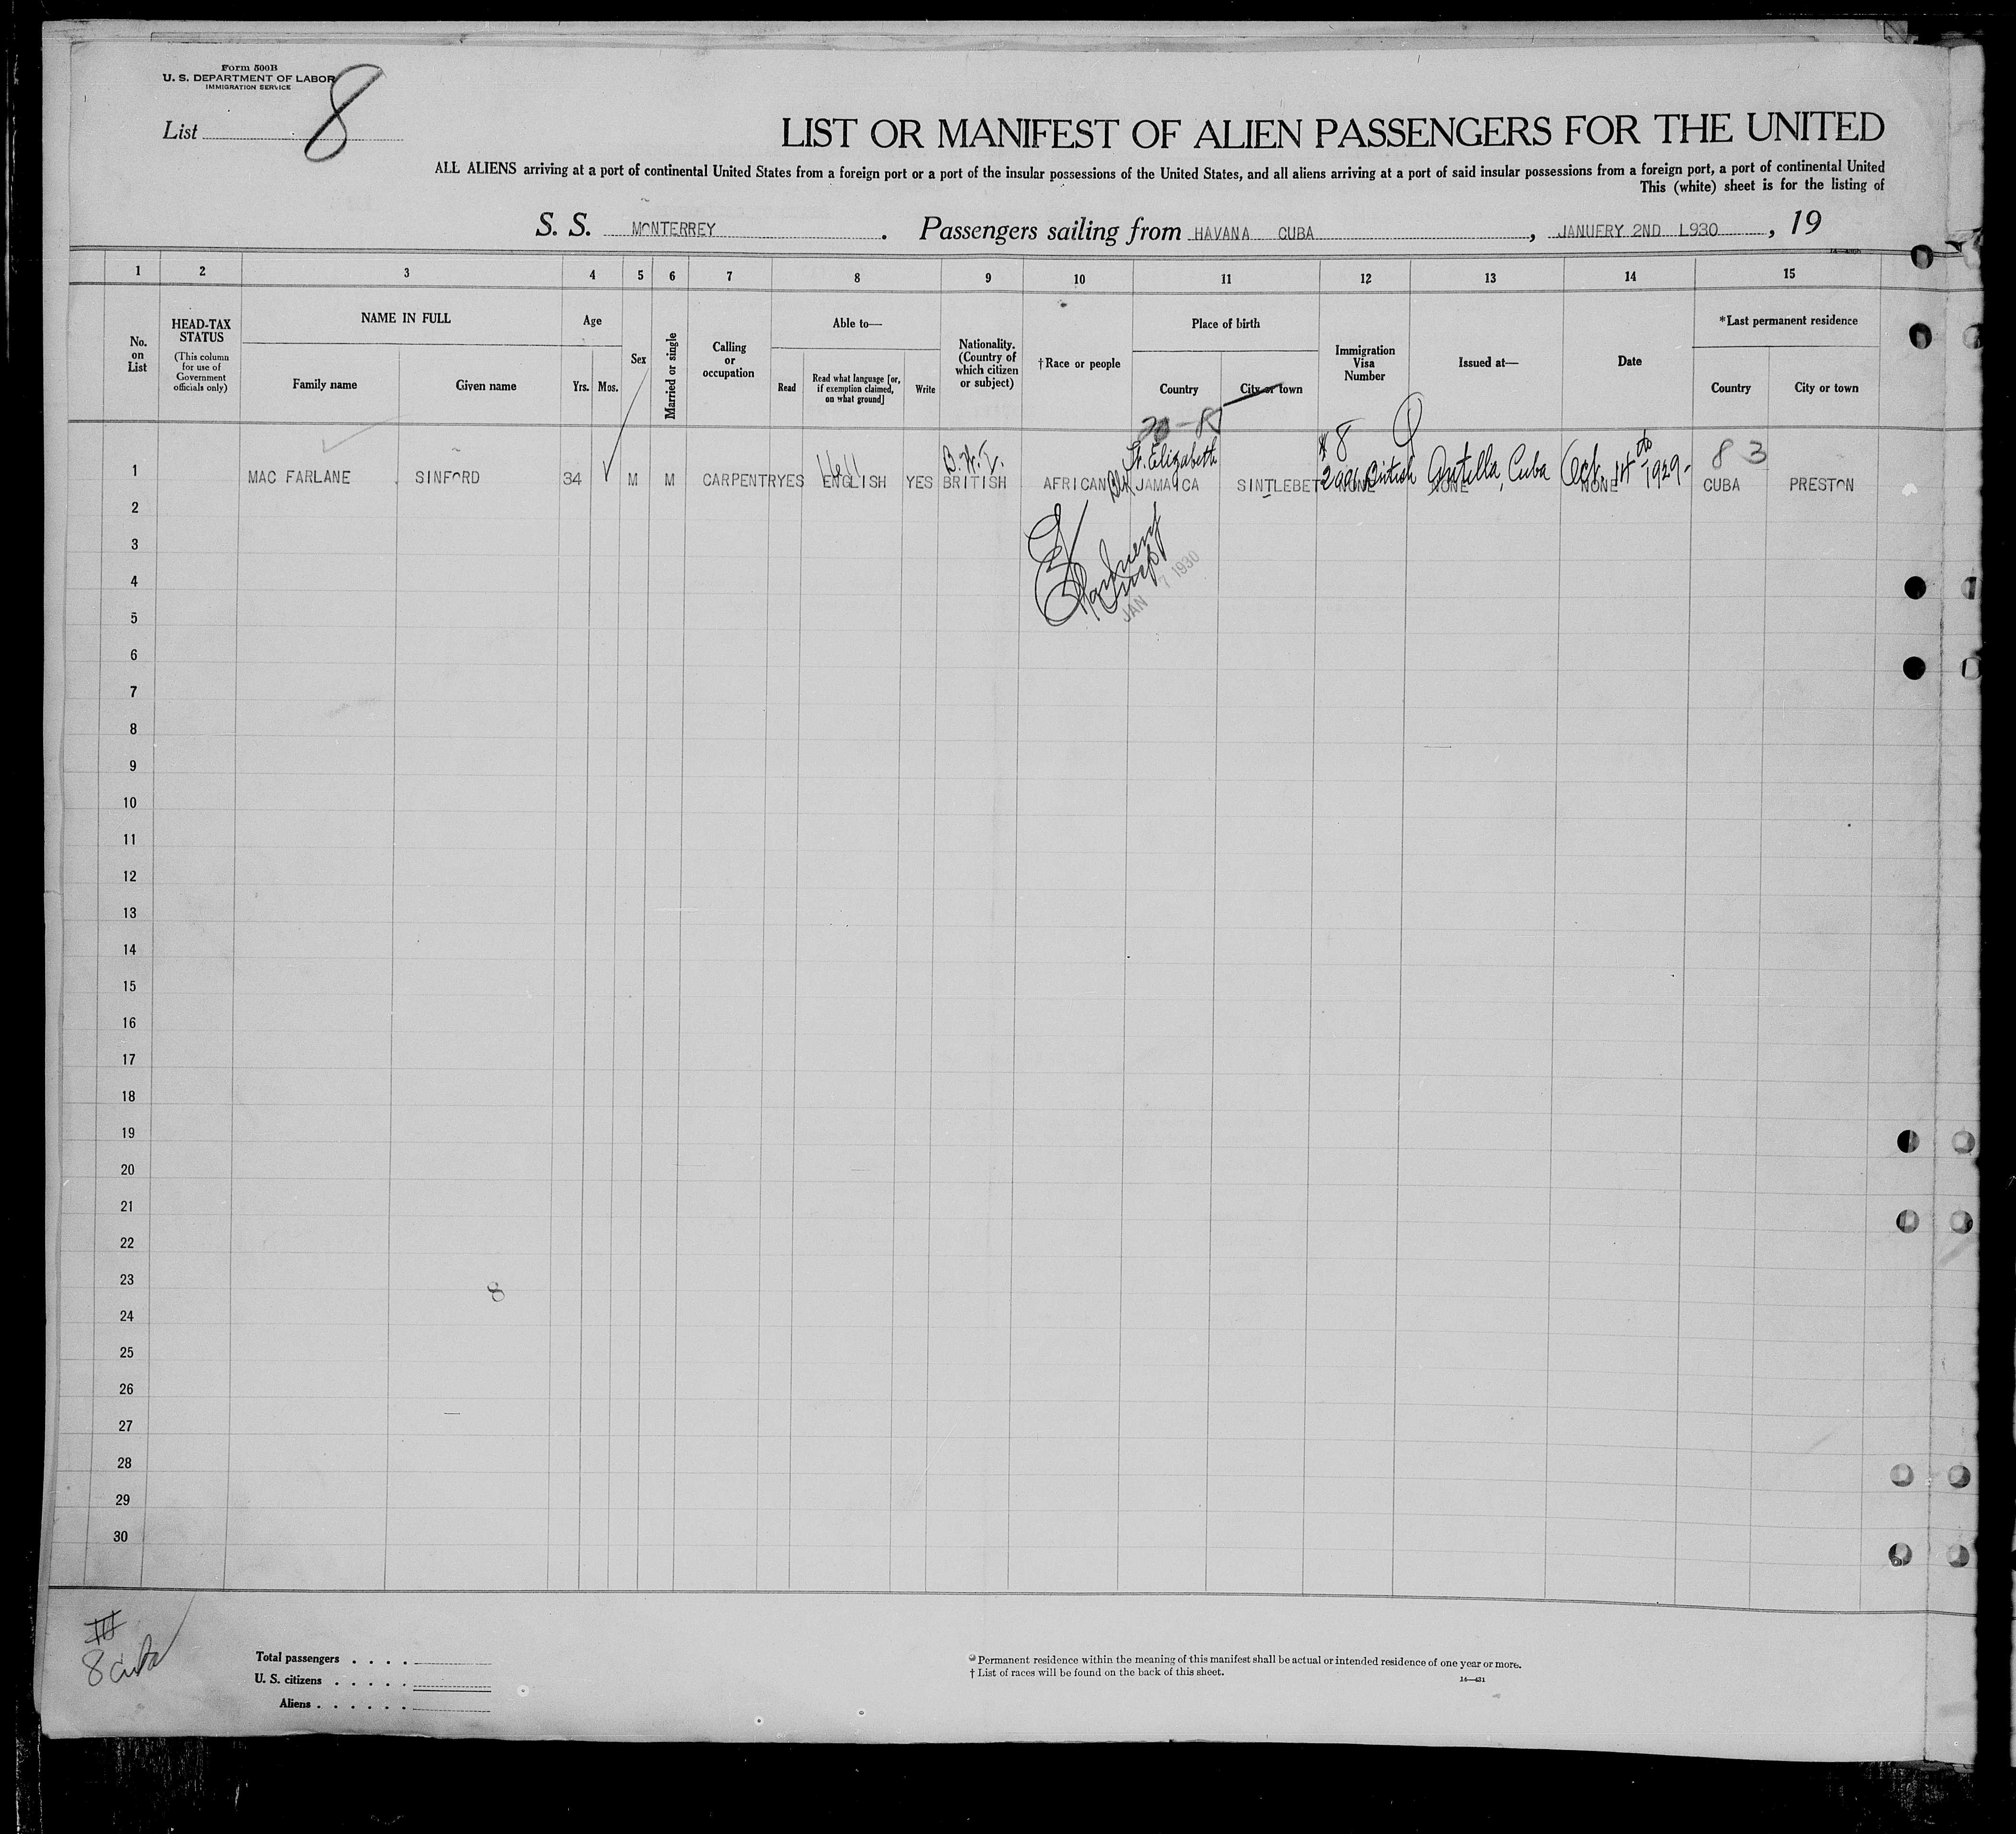 Form 500B
U. S. DEPARTMENT OF LABOR
IMMIGRATION SERVICE
List 8
LIST OR MANIFEST OF ALIEN PASSENGERS FOR THE UNITED
ALL ALIENS arriving at a port of continental United States from a foreign port or a port of the insular possessions of the United States, and all aliens arriving at a port of said insular possessions from a foreign port, a port of continental United
This (white) sheet is for the listing of
S. S. MONTERREY . Passengers sailing from HAVANA CUBA , JANUERY 2ND L930 , 19
1 2 3 4 5 6 7 8 9 10 11 12 13 14 15
No. on List
HEAD-TAX STATUS
(This column for use of Government officials only)
NAME IN FULL
Family name Given name
Age
Yrs. Mos.
Sex
Married or single
Calling or occupation
Able to—
Read
Read what language [or, if exemption claimed, on what ground]
Write
Nationality. (Country of which citizen or subject)
†Race or people
Place of birth
Country City or town
Immigration Visa Number
Issued at—
Date
*Last permanent residence
Country City or town
B.W.I. St. Elizabeth 8 8 3
1 MAC FARLANE SINFORD 34 M M CARPENTR YES ENGLISH YES BRITISH AFRICAN Blk JAMAICA SINTLEBET NONE British NONE Antilla, Cuba NONE Oct. 14th 1929- CUBA PRESTON
2
3
4
JAN 7 1930
5
6
7
8
9
10
11
12
13
14
15
16
17
18
19
20
21
22
23
8
24
25
26
27
28
29
30
8 Cuba
Total passengers . . . .
U. S. citizens . . . . .
Aliens . . . . . .
* Permanent residence within the meaning of this manifest shall be actual or intended residence of one year or more.
† List of races will be found on the back of this sheet.
14—431